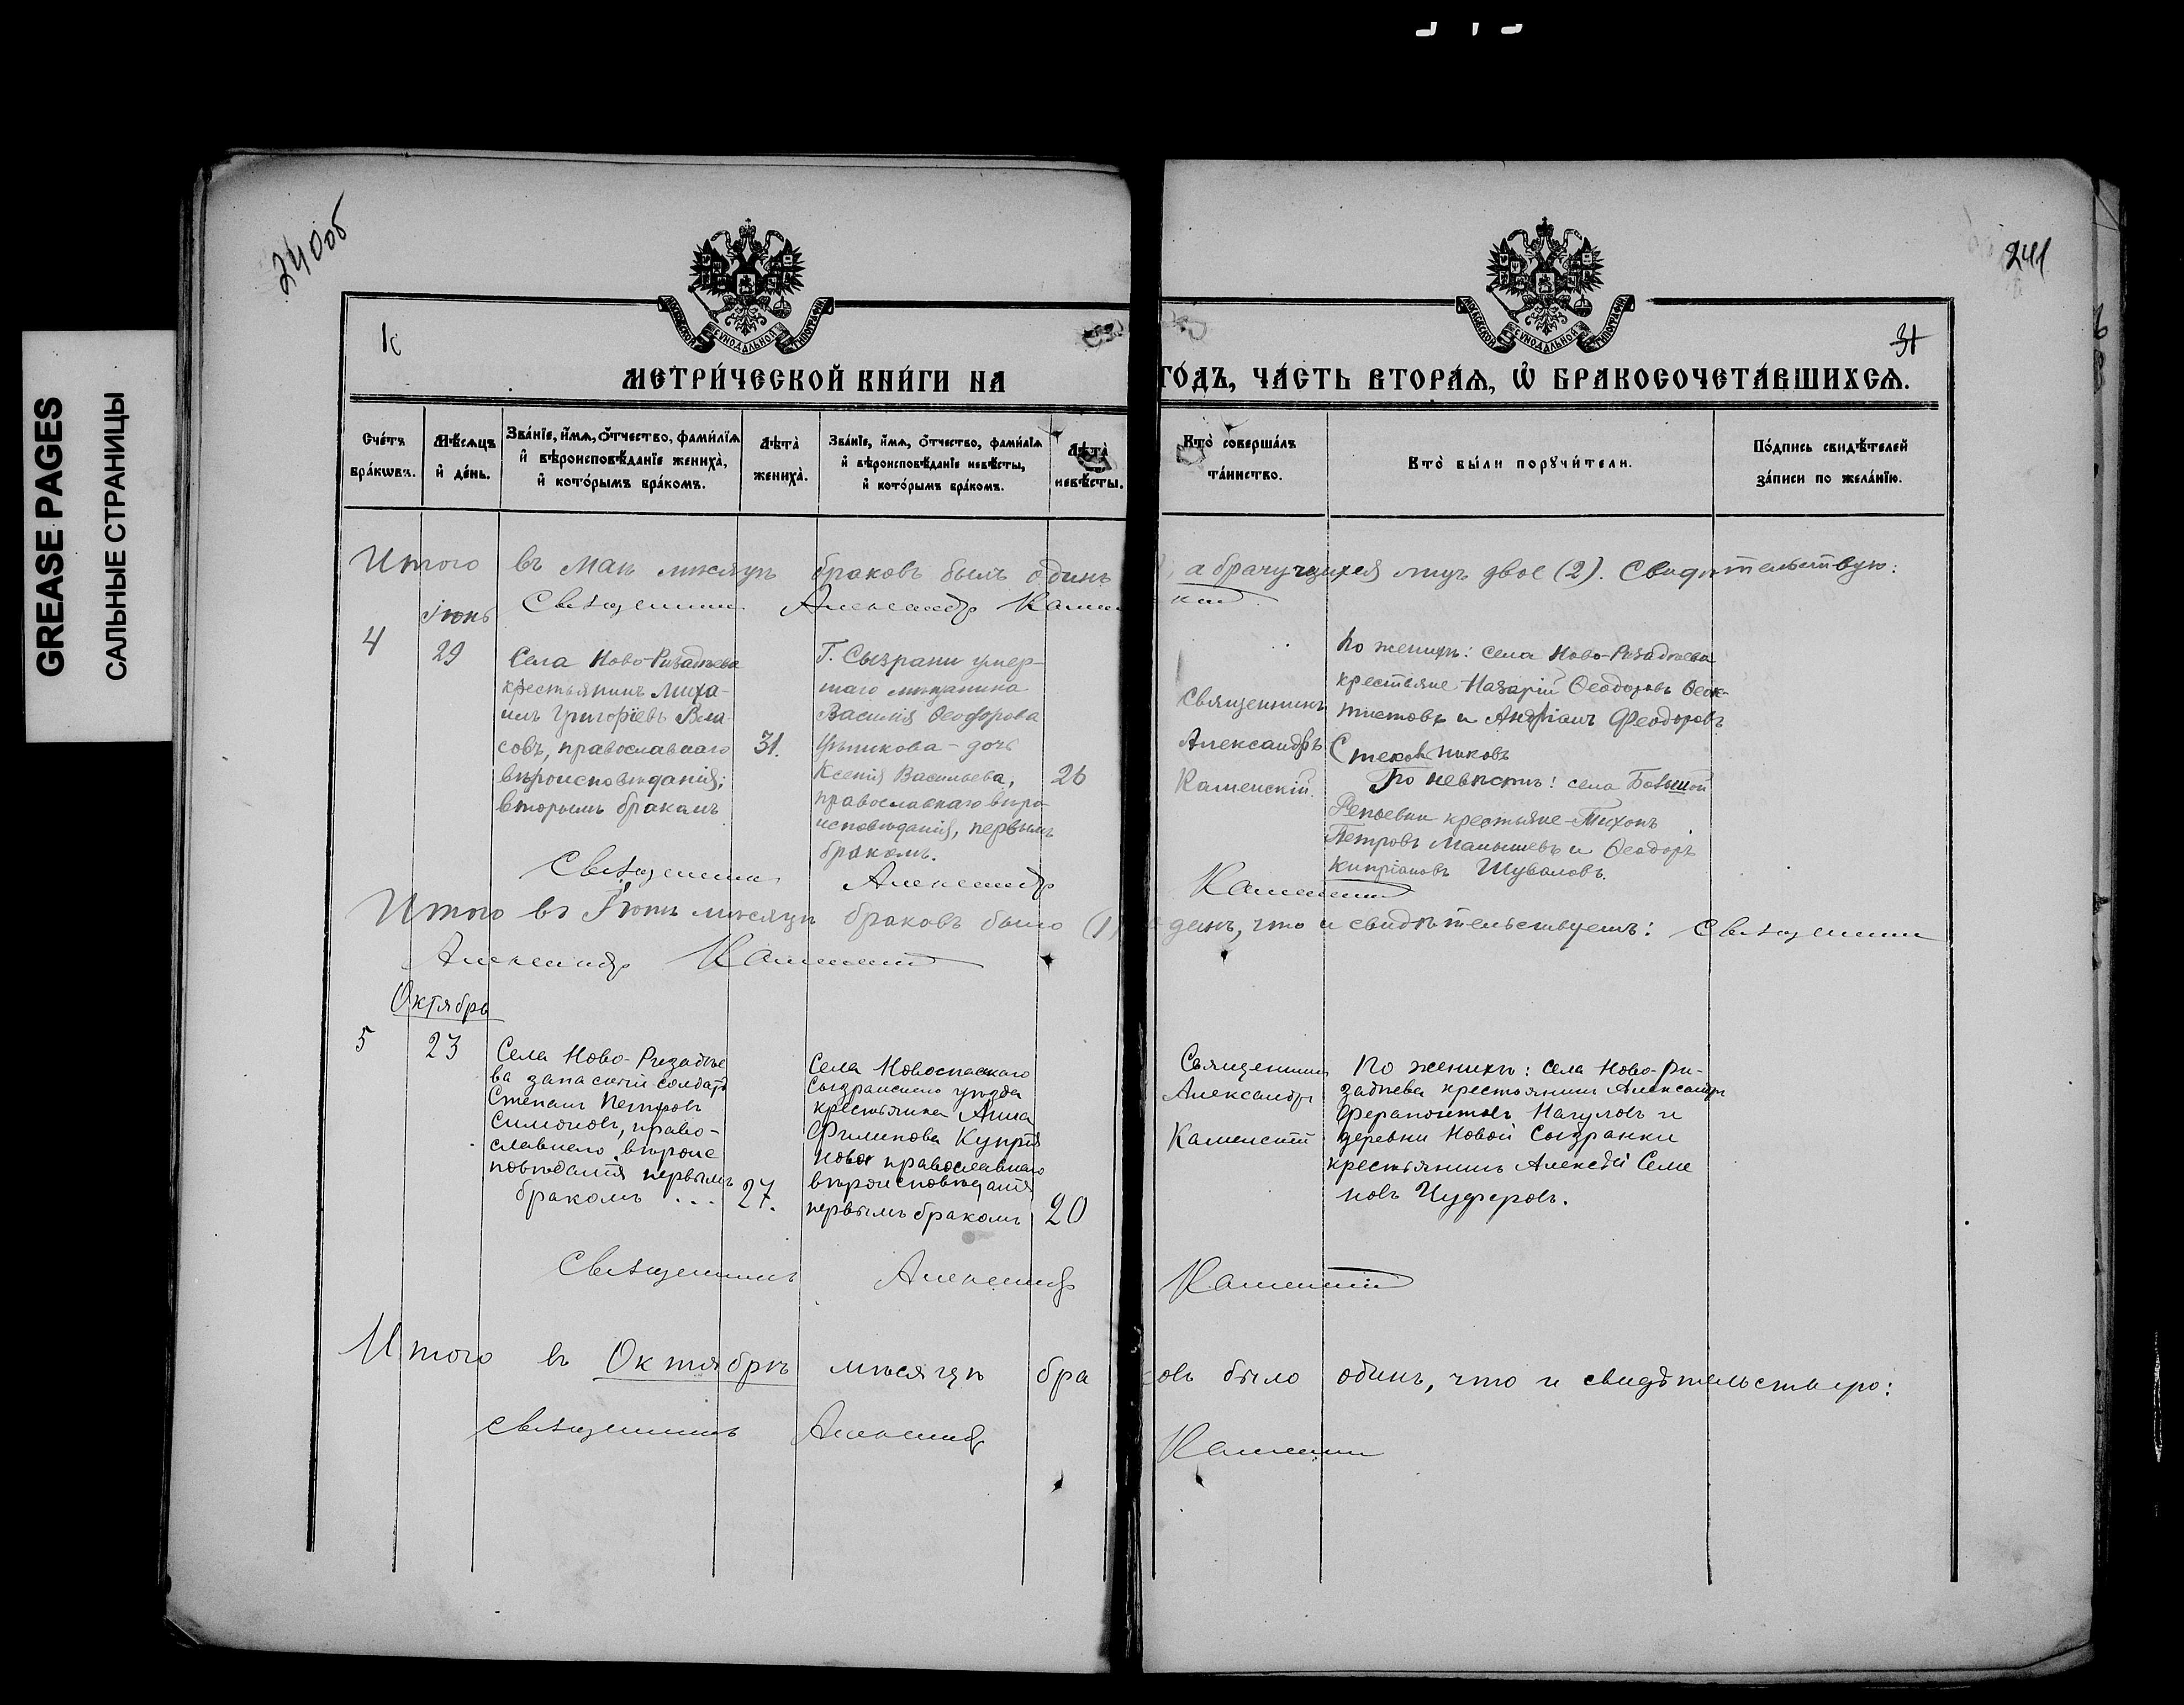 GREASE PAGES
САЛЬНЫЕ СТРАНИЦЫ
240об
241
31
МЕТРИ́ЧЕСКОЙ КНИ́ГИ НА ГО́ДЪ, ЧА́СТЬ ВТОРА́Ѧ, Ѽ БРАКОСОЧЕТА́ВШИХСѦ.
Сче́тъ бра́кѡвъ.
Мѣ́сѧцъ и҆ де́нь.
Зва́нїе, и҆́мѧ, ѻ҆́тчество, фами́лїѧ и҆ вѣроисповѣ́данїе жениха̀, и҆ кото́рымъ бра́комъ.
Лѣта̀ жениха̀.
Зва́нїе, и҆́мѧ, ѻ҆́тчество, фами́лїѧ и҆ вѣроисповѣ́данїе невѣ́сты, и҆ кото́рымъ бра́комъ.
Лѣта̀ невѣ́сты.
Кто̀ соверша́лъ та́инство.
Кто̀ бы́ли порꙋчи́тели.
По́дпись свидѣ́телей за́писи по жела́нїю.
Итого въ Маѣ мѣсяцѣ браковъ былъ одинъ, а брачущихся лицъ двое (2). Свидѣтельствую:
Священникъ Александръ Каменскій
Іюнь
4
29
Села Ново-Ризадѣева
крестьянинъ Миха-
илъ Григоріевъ Вла-
совъ, православнаго
вѣроисповѣданія;
вторымъ бракомъ
31.
Г. Сызрани умер-
шаго мѣщанина
Василія Ѳеодорова
дочь
Ксенія Васильева,
православнаго вѣро-
исповѣданія, первымъ
бракомъ.
26
Священникъ
Александръ
Каменскій.
По женихѣ: села Ново-Ризадѣева
крестьяне Назарій Ѳеодоровъ Ѳеок-
тистовъ и Андріанъ Феодоровъ
Стекольниковъ
По невѣстѣ: села Большой
Репьевки крестьяне-Тихонъ
Петровъ Манышевъ и Ѳеодоръ
Кипріановъ Шуваловъ.
Священникъ Александръ Каменскій
Итого въ Іюнѣ мѣсяцѣ браковъ было (1) одинъ, что и свидѣтельствуемъ: Священникъ
Александръ Каменскій
Октябрь
5
23
Села Ново-Ризадѣе
ва запасный солдатъ
Степанъ Петровъ
Симоновъ, право-
славнаго вѣроис
повѣданія первымъ
бракомъ ...
27.
Села Новоспасскаго
Сызранскаго уѣзда
крестьянка Анна
Филипова Купрія
нова православнаго
вѣроисповѣданія
первымъ бракомъ
20
Священникъ
Александръ
Каменскій
По женихѣ: села Ново-Ри-
задѣева крестьянинъ Александръ
Ферапонтовъ Начуловъ и
деревни Новой Сызранки
крестьянинъ Алексѣй Семе
новъ Чуфоровъ.
Священникъ Александръ Каменскій
Итого въ Октябрѣ мѣсяцѣ браковъ было одинъ, что и свидѣтельствую:
священникъ Александръ Каменскій